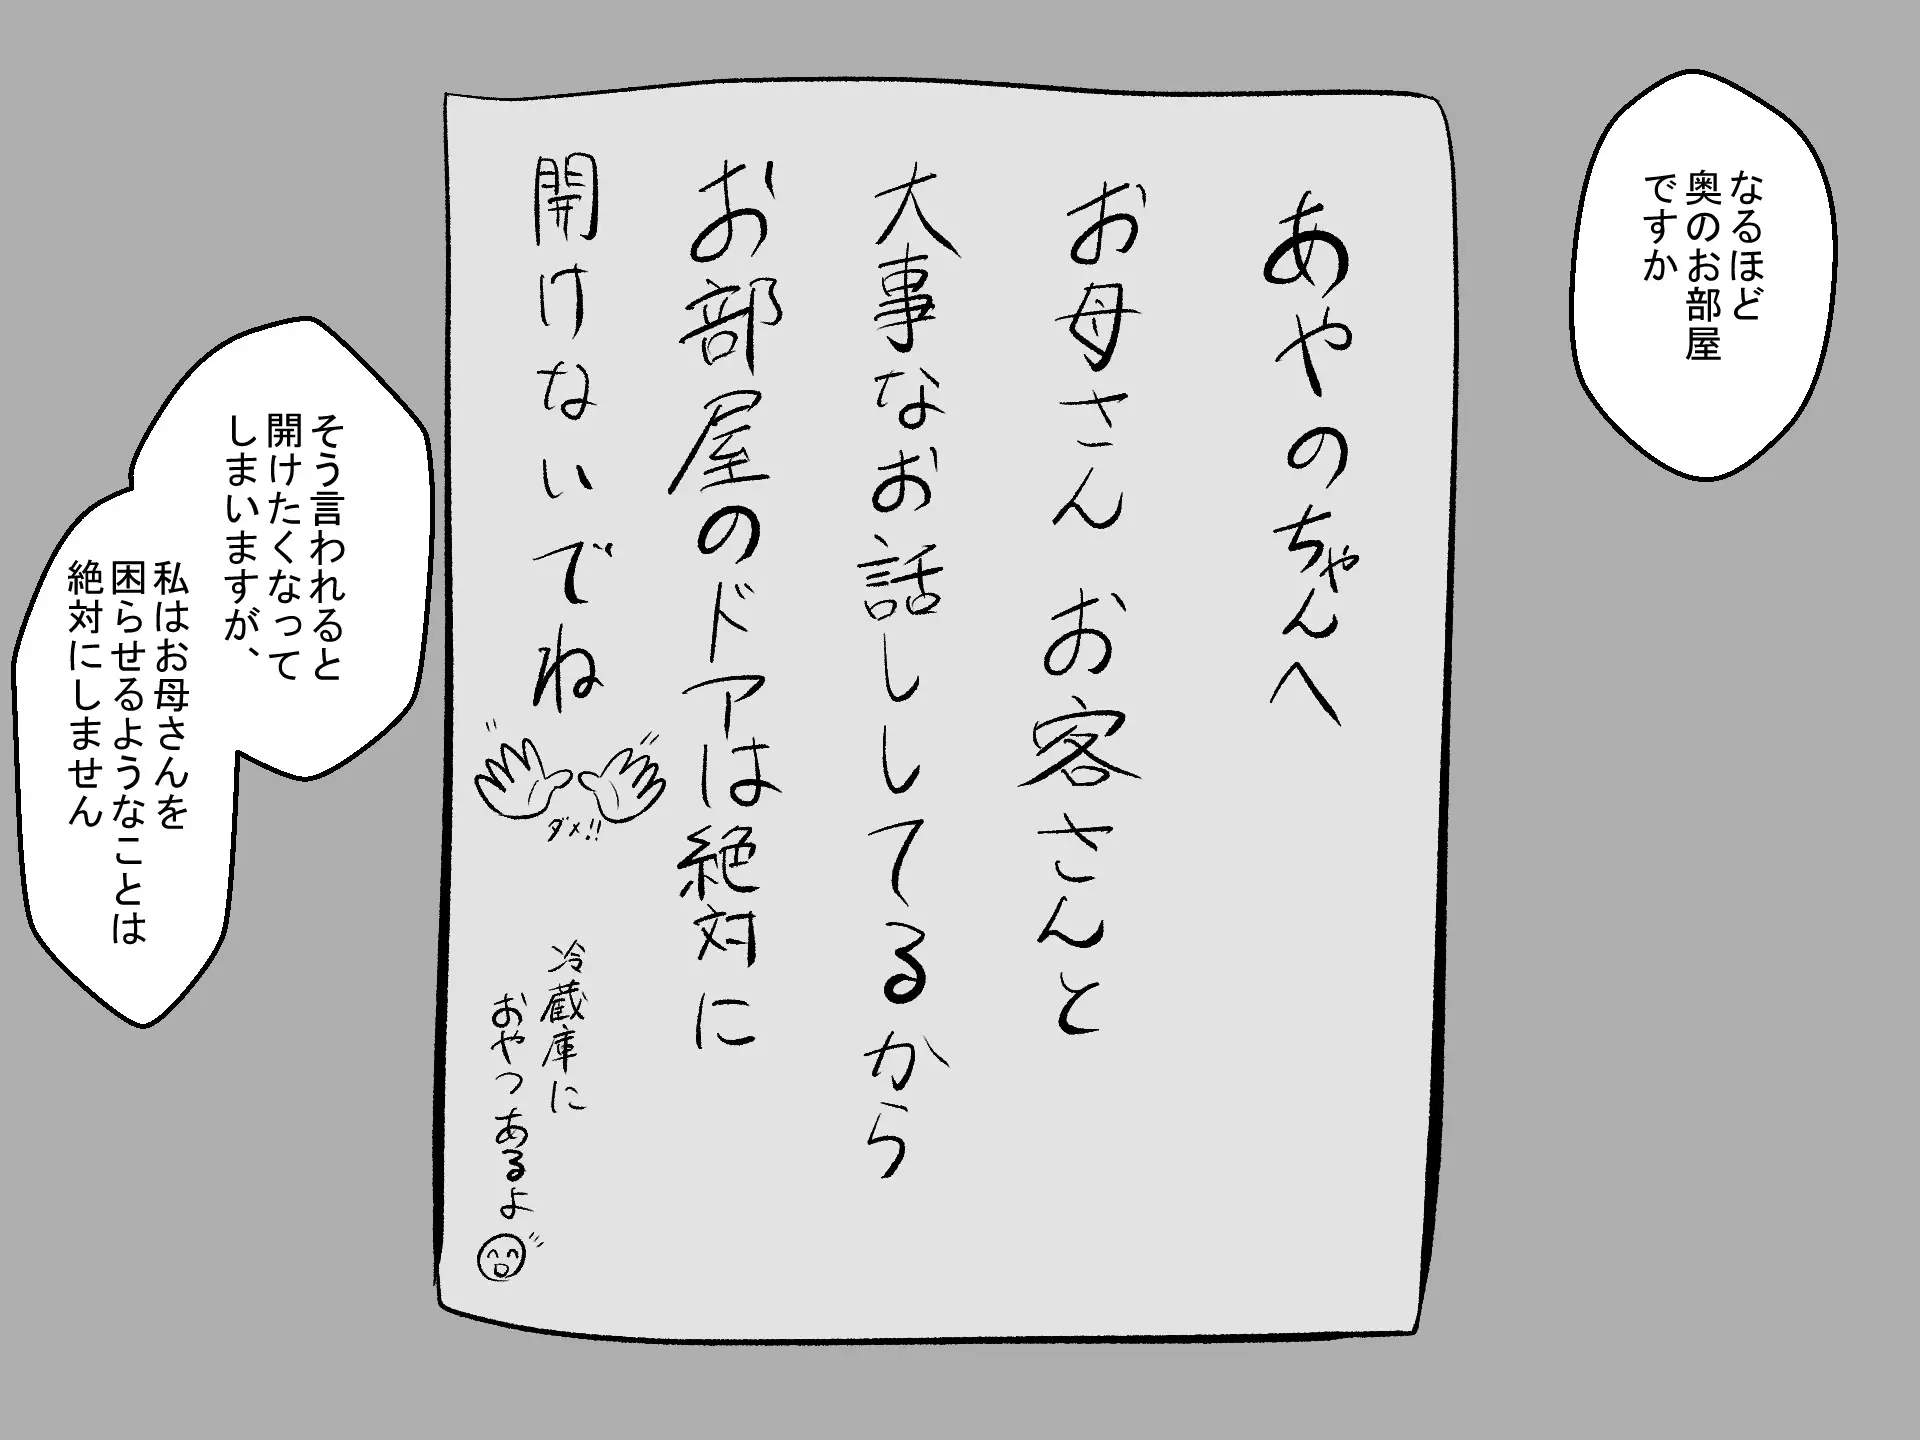 なるほど
奥のお部屋
ですか
あやのちゃんへ
お母さん お客さんと
大事なお話ししてるから
お部屋のドアは絶対に
開けないでね
ダメ!!
冷蔵庫に
おやつあるよ
そう言われると
開けたくなって
しまいますが、
私はお母さんを
困らせるようなことは
絶対にしません